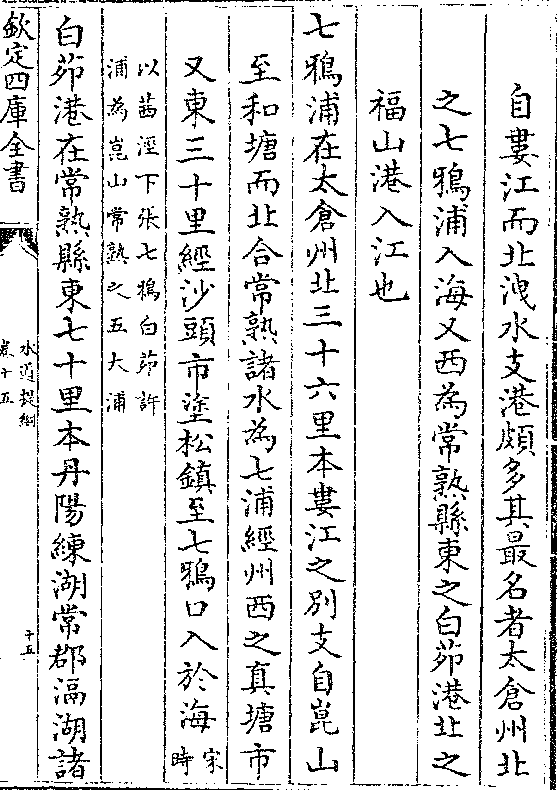 自婁江而北洩水支港頗多其最名者太倉州北
之七鴉浦入海又西為常熟縣東之白茆港北之
福山港入江也
七鴉浦在太倉州北三十六里本婁江之别支自崑山
至和塘而北合常熟諸水為七浦經州西之真塘市
又東三十里經沙頭市塗松鎮至七鴉口入於海宋時
以茜涇下張七鴉白茆許
浦為崑山常熟之五大浦
白茆港在常熟縣東七十里本丹陽練湖常郡滆湖諸
欽定四庫全書
水道提綱
卷十五
十五